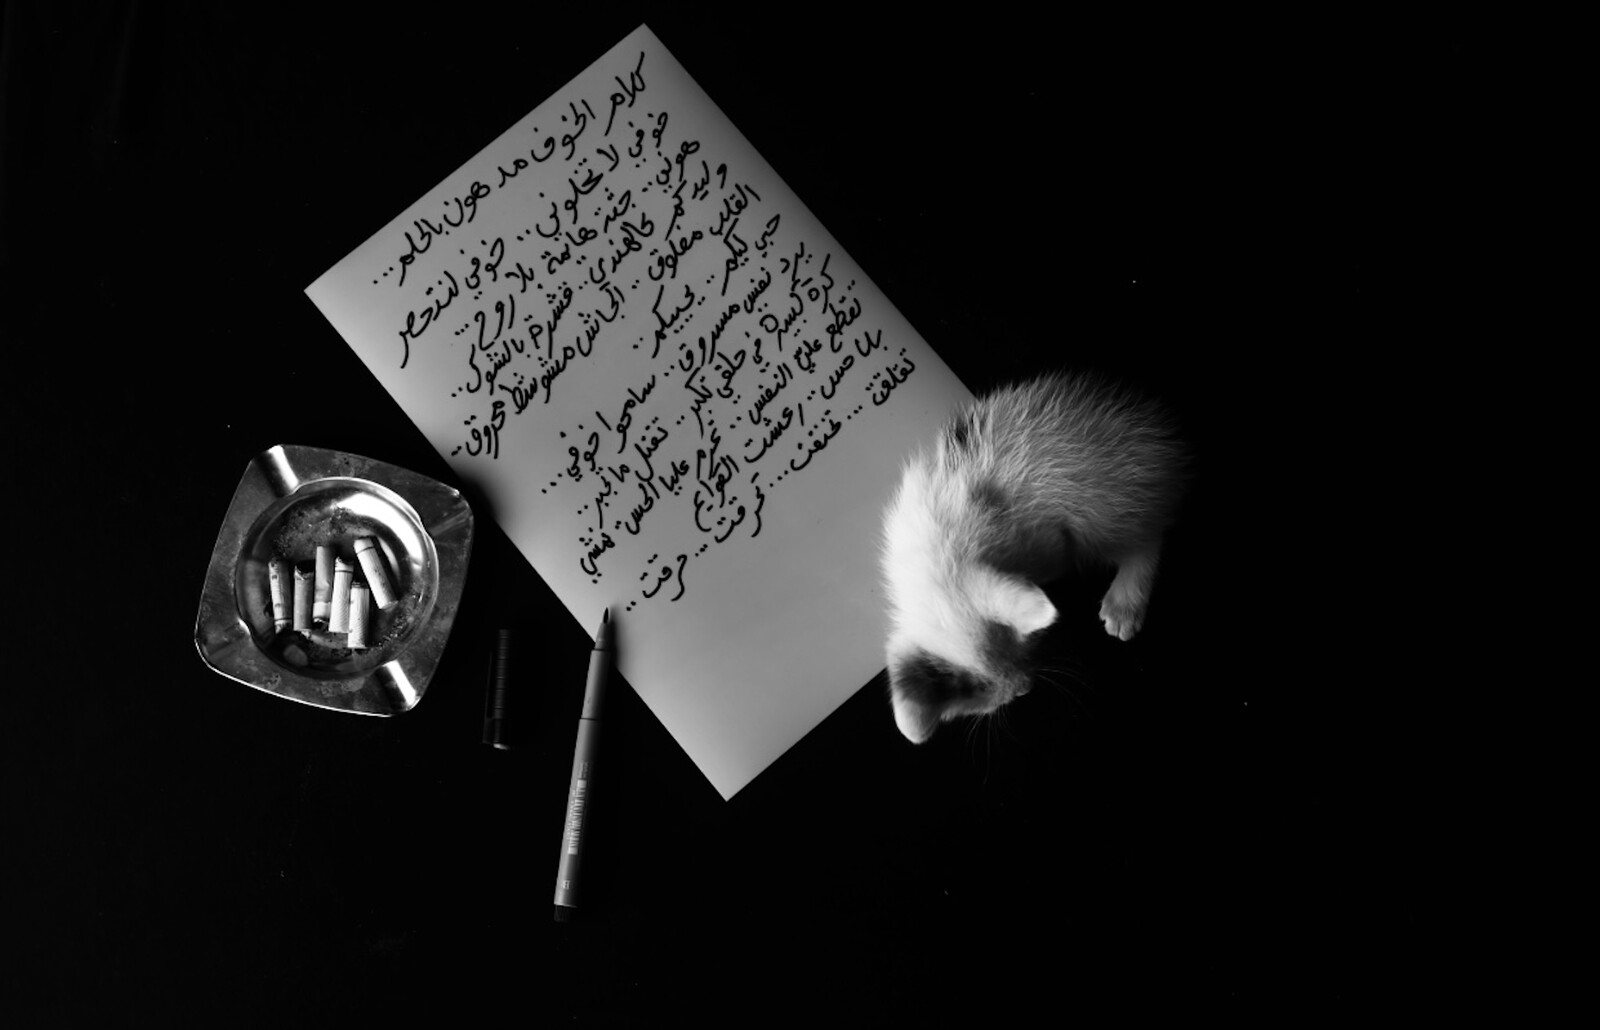 كلام الخوف مد هون بالحلم...
خوفي لا تخلوني.. خوفي لننتحر
هوني.. جثة هايمة بلا روح...
وليدكم كالهندي.. قشرة بالشوك..
القلب مفلوق.. الجاش مشوشط محروق..
حبي ليكم.. يجيبكم..
يرد نفس مسروق.. سامحوا خوفي...
كرة كبيرة في حلقي تكبر.. تقتل
تقطع عليّ النفس.. تحرم عليا الحس تمشي
بلا حس.. رعشت
تقلقت... تخنقت... تحرقت... حرقت..